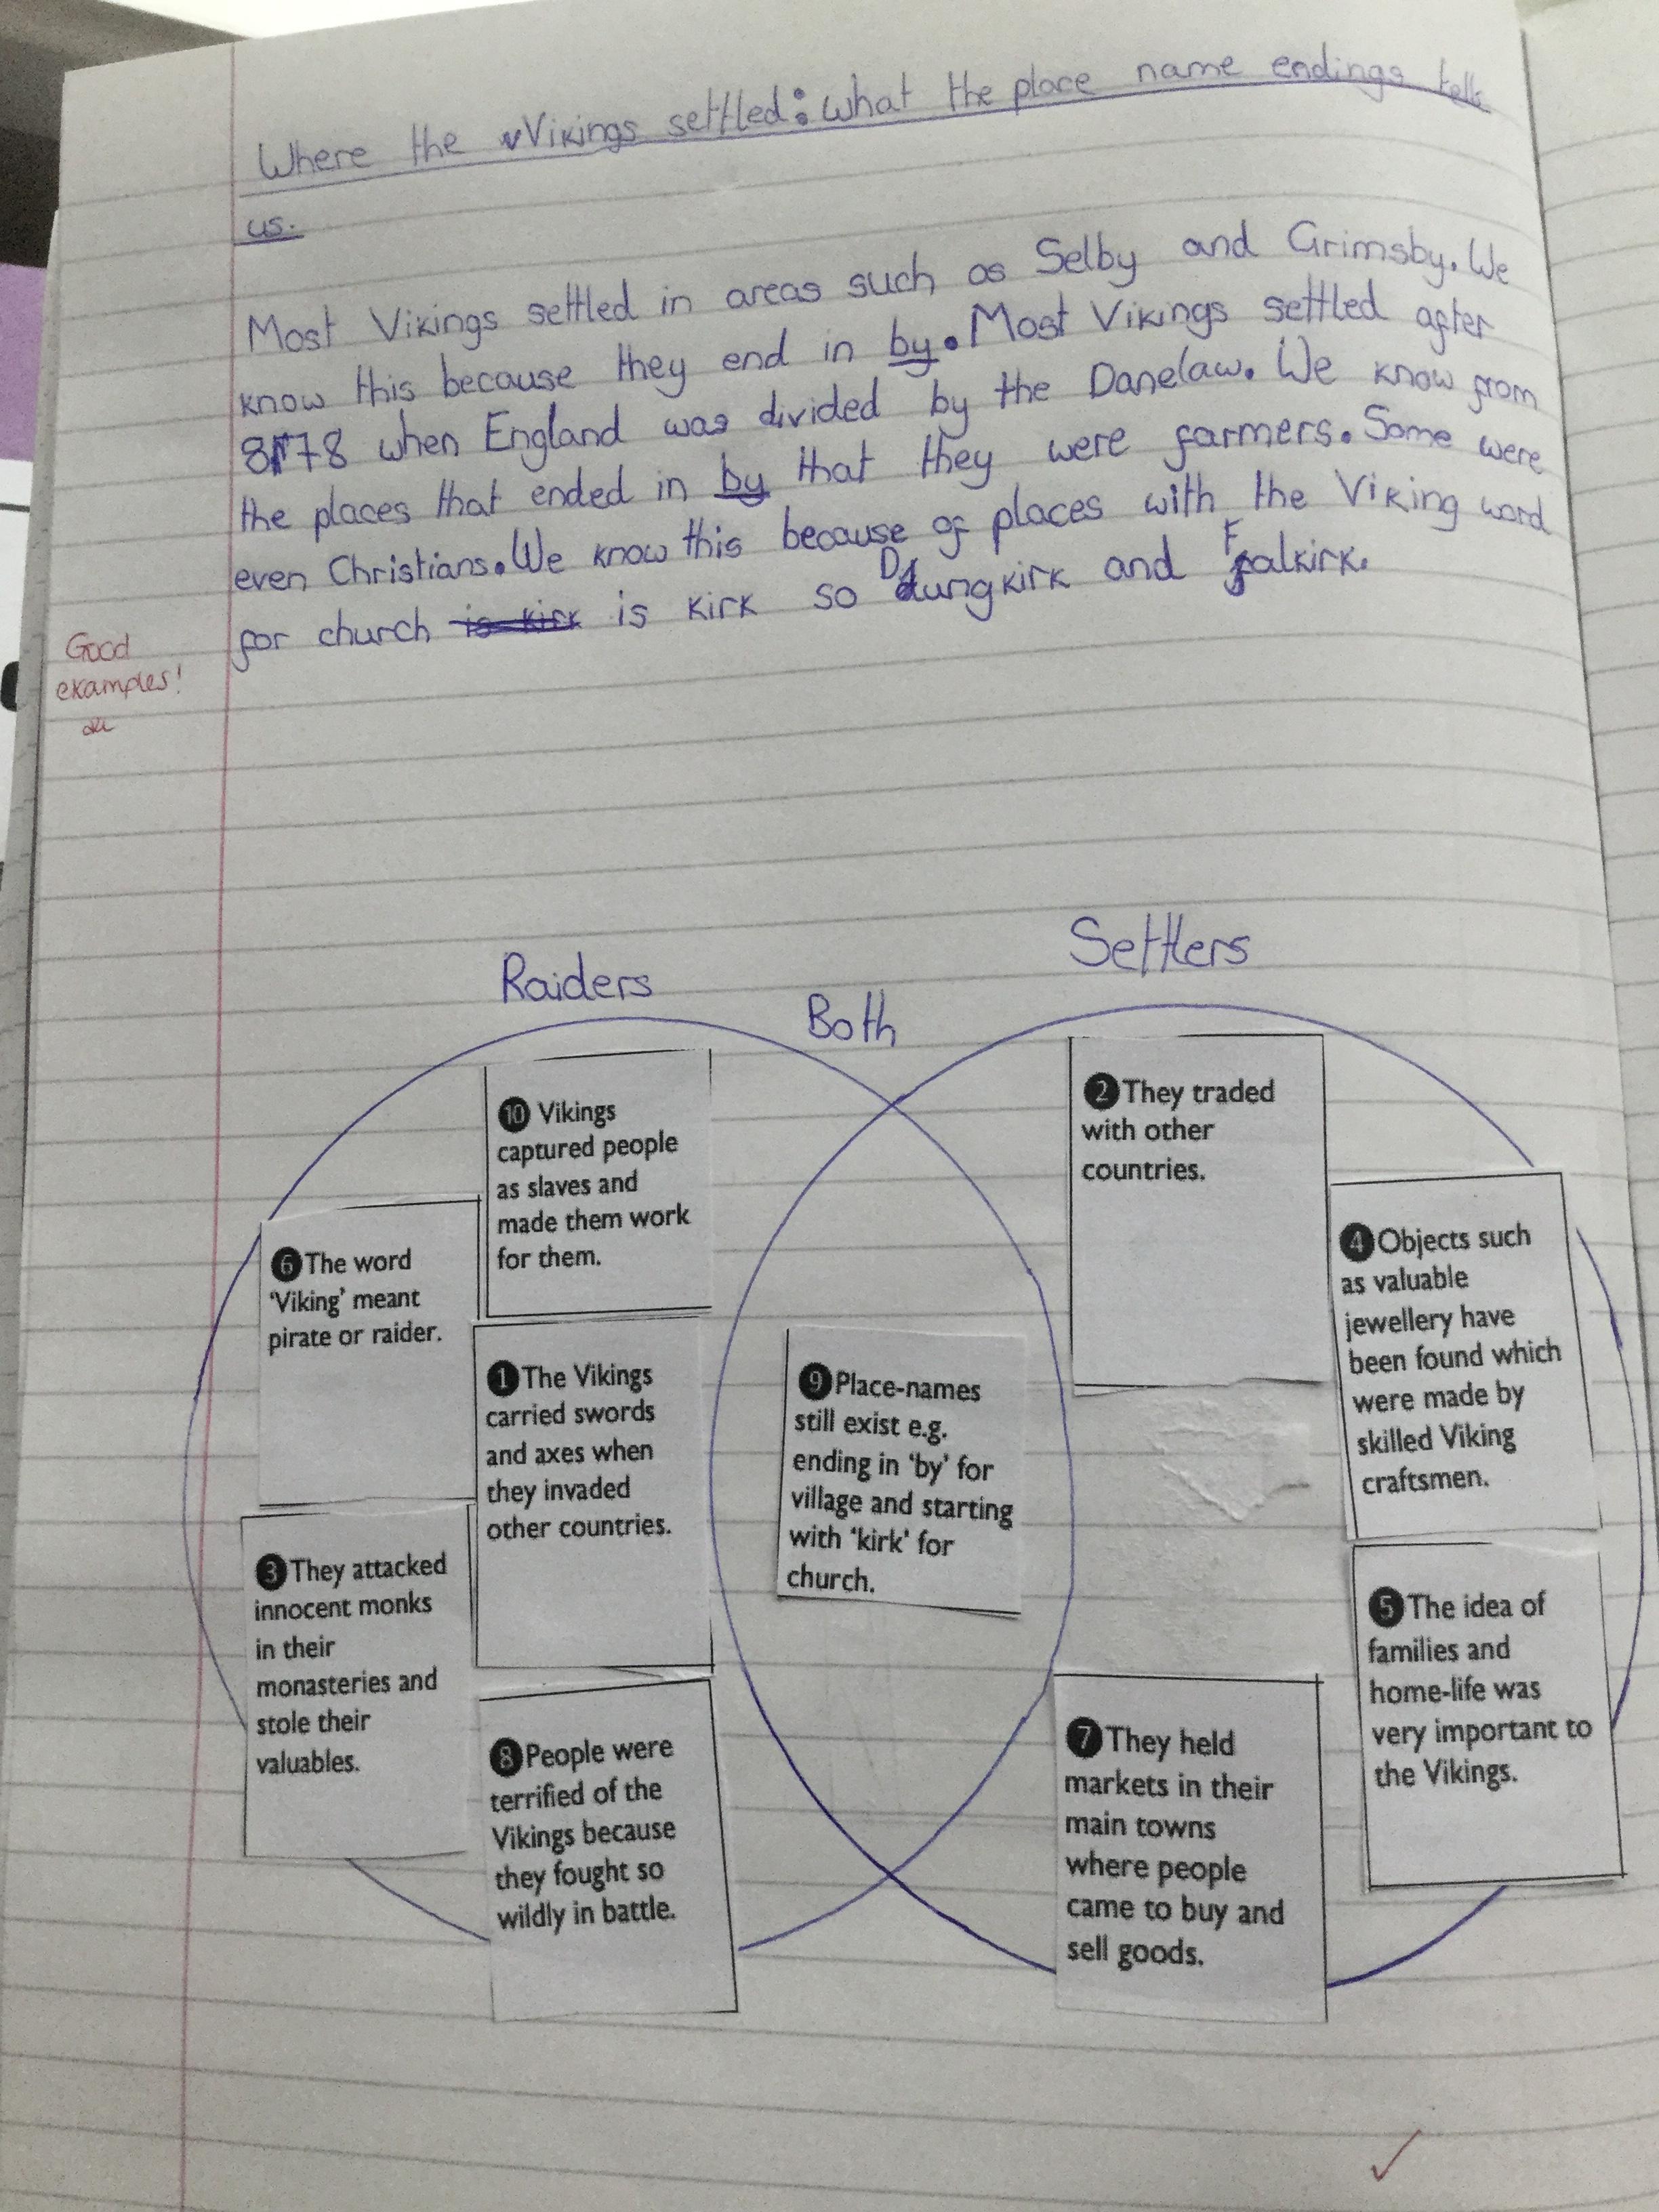 Where the Vikings settled: what the place name endings tells
us.
Most Vikings settled in areas such as Selby and Grimsby. We
know this because they end in by. Most Vikings settled after
878 when England was divided by the Danelaw. We know from
the places that ended in by that they were farmers. Some were
even Christians. We know this because of places with the Viking word
for church is kirk is kirk so Dungkirk and Falkirk.
Good
examples!
Raiders
Both
Settlers
❿ Vikings
captured people
as slaves and
made them work
for them.
❻ The word
'Viking' meant
pirate or raider.
❶ The Vikings
carried swords
and axes when
they invaded
other countries.
❸ They attacked
innocent monks
in their
monasteries and
stole their
valuables.
❽ People were
terrified of the
Vikings because
they fought so
wildly in battle.
❾ Place-names
still exist e.g.
ending in 'by' for
village and starting
with 'kirk' for
church.
❷ They traded
with other
countries.
❹ Objects such
as valuable
jewellery have
been found which
were made by
skilled Viking
craftsmen.
❺ The idea of
families and
home-life was
very important to
the Vikings.
❼ They held
markets in their
main towns
where people
came to buy and
sell goods.